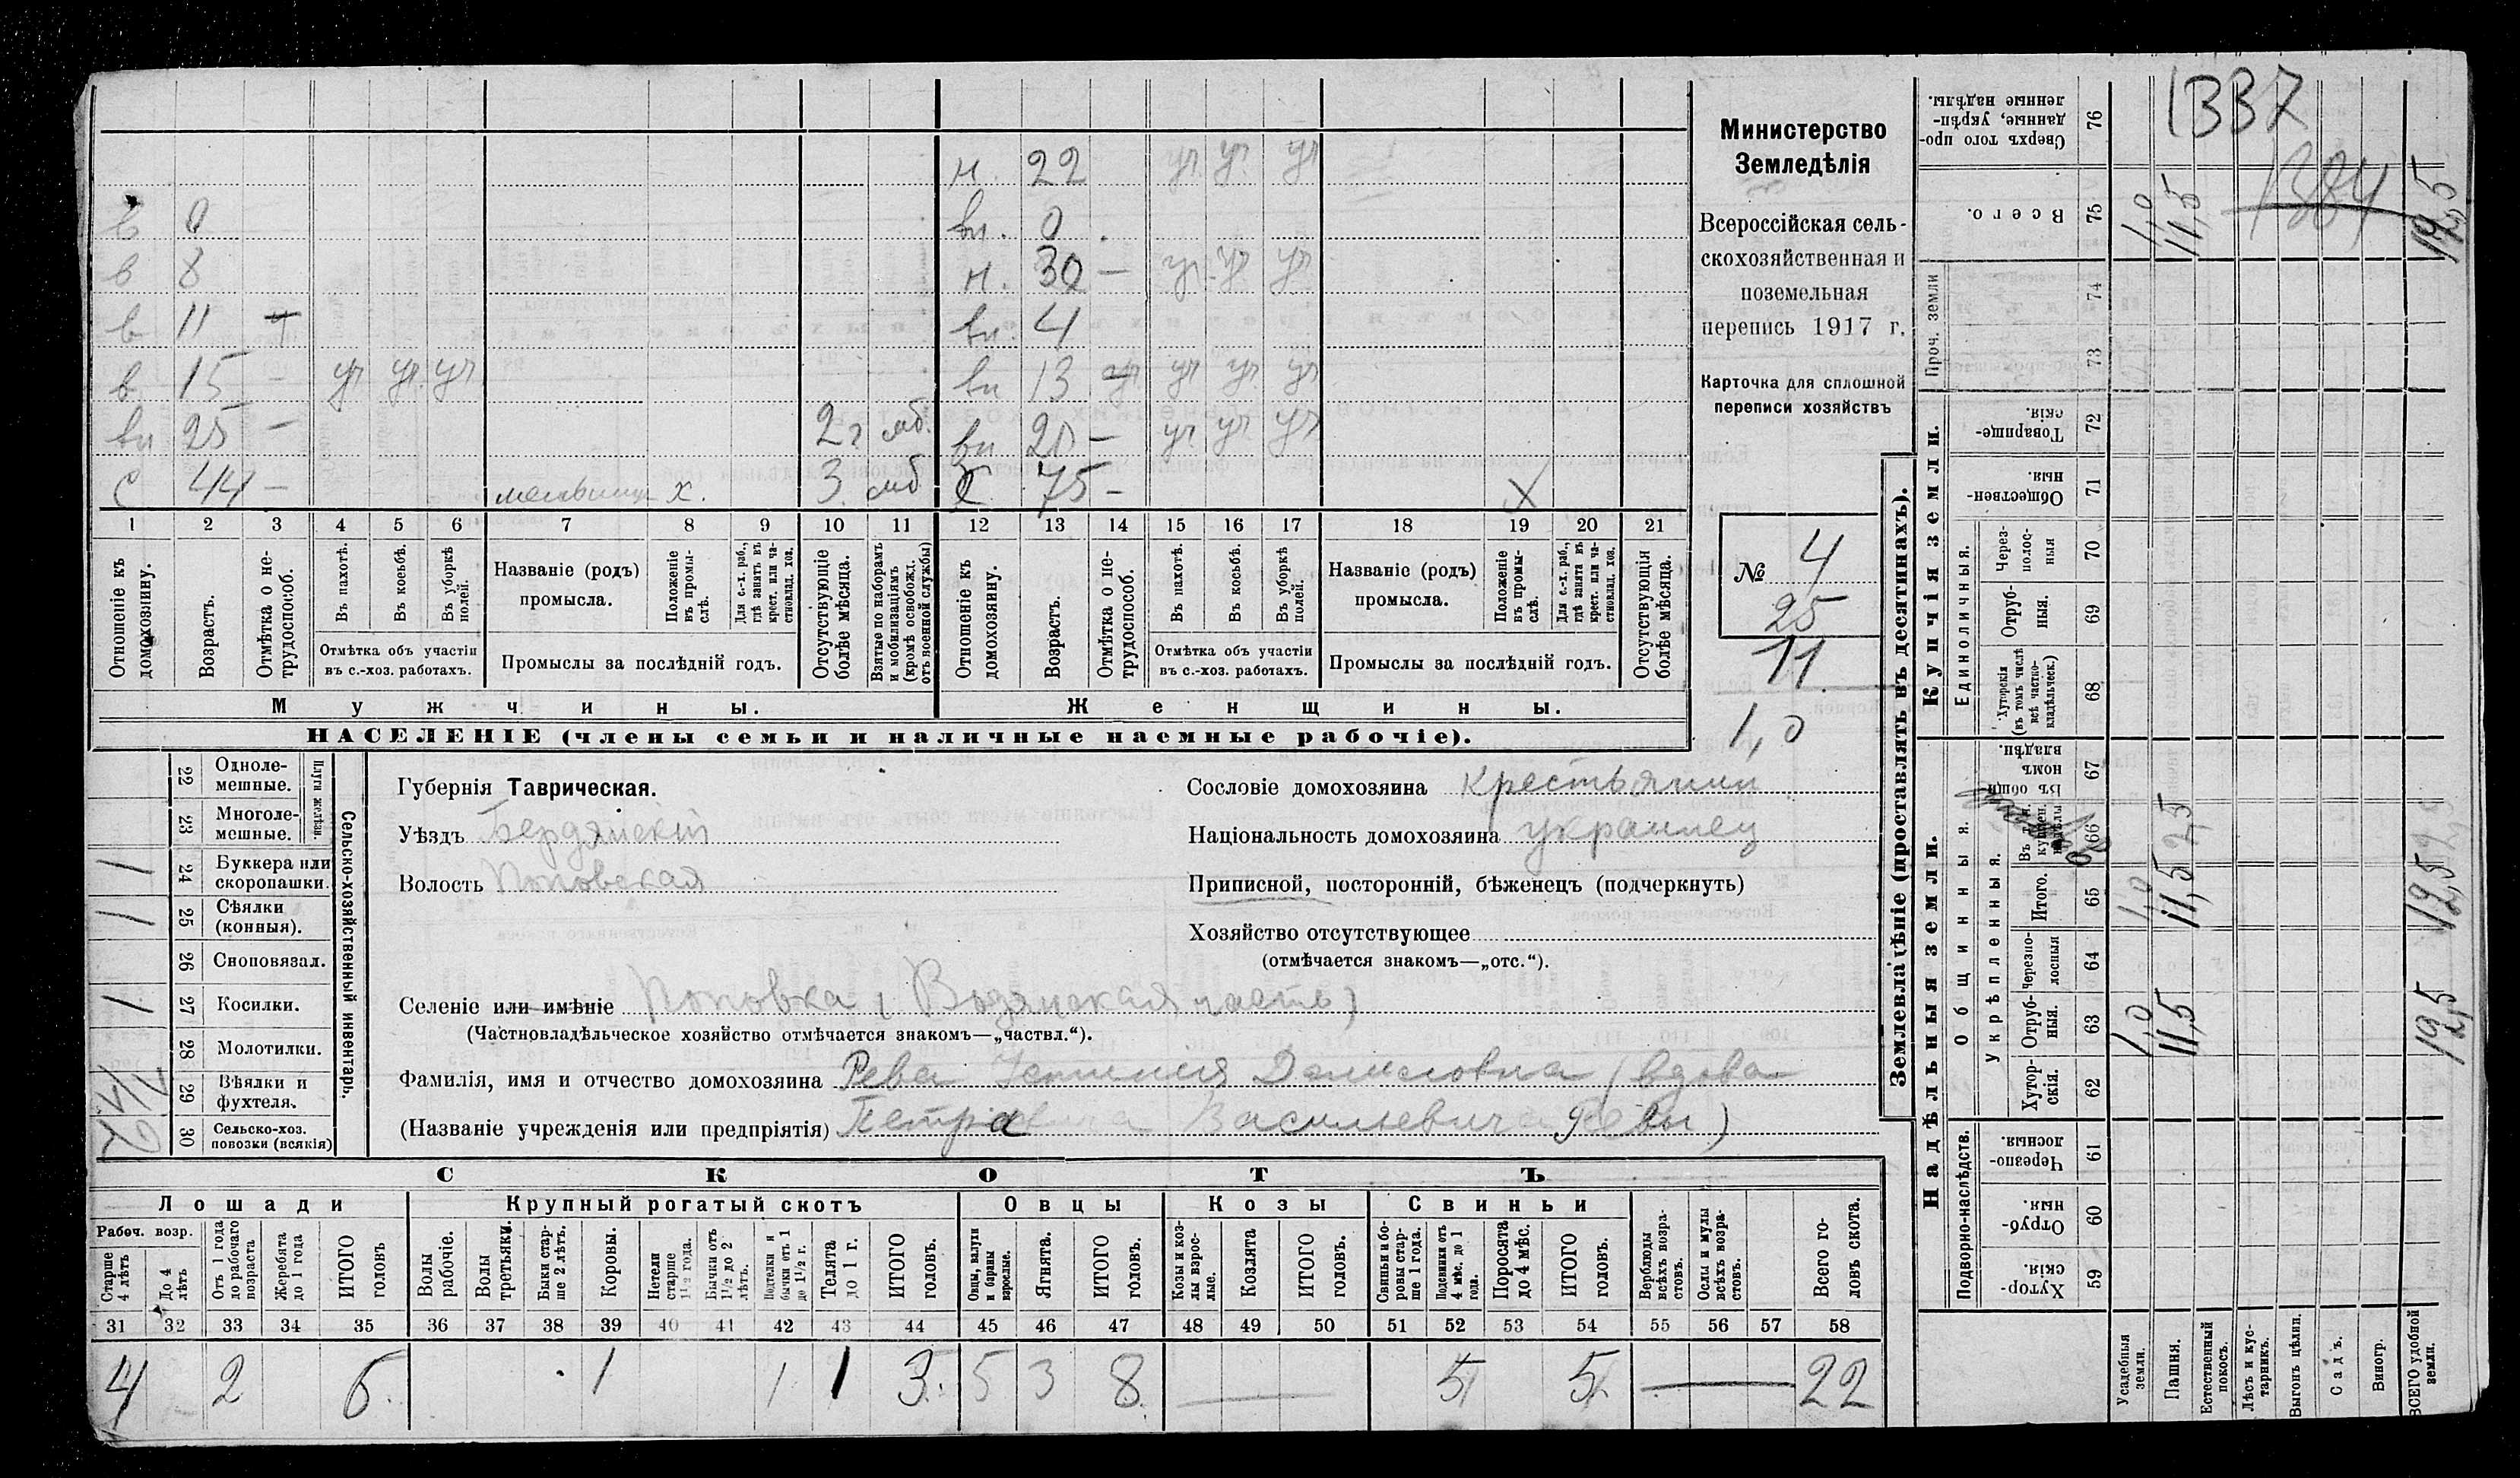 Министерство
Земледѣлія
Всероссійская сель-
скохозяйственная и
поземельная
перепись 1917 г.
Карточка для сплошной
переписи хозяйствъ
№ 4
25
11
1,0
1337
1384
н. 22 — уч уч уч
в 0
вн. 0
в 8
н. 30 — уч уч уч
в 11
вн. 4
в 15 — уч уч уч
вн 13 уч уч уч
вн 25 — 2 г мб.
вн 20 — уч уч уч
с 44 — х. 3 мб
75 — х
1 2 3 4 5 6 7 8 9 10 11 12 13 14 15 16 17 18 19 20 21
Отношеніе къ домохозяину.
Возрастъ.
Отмѣтка о не-трудоспособ.
Въ пахотѣ.
Въ косьбѣ.
Въ уборкѣ полей.
Отмѣтка объ участіи
въ с.-хоз. работахъ.
Названіе (родъ)
промысла.
Положеніе въ промы-слѣ.
Для с.-х. раб., гдѣ занятъ въ крест. или ча-стновлад. хоз.
Промыслы за послѣдній годъ.
Отсутствующіе болѣе мѣсяца.
Взятые по наборамъ и мобилизаціямъ (кромѣ освобожд. отъ военной службы)
Отношеніе къ домохозяину.
Возрастъ.
Отмѣтка о не-трудоспособ.
Въ пахотѣ.
Въ косьбѣ.
Въ уборкѣ полей.
Отмѣтка объ участіи
въ с.-хоз. работахъ.
Названіе (родъ)
промысла.
Положеніе въ промы-слѣ.
Для с.-х. раб., гдѣ занята въ крест. или ча-стновлад. хоз.
Промыслы за послѣдній годъ.
Отсутствующія болѣе мѣсяца.
Мужчины.
Женщины.
НАСЕЛЕНІЕ (члены семьи и наличные наемные рабочіе).
Сельско-хозяйственный инвентарь.
Плуги желѣзн.
22 Одноле-мешные.
23 Многоле-мешные.
1 24 Буккера или скоропашки.
1 25 Сѣялки (конныя).
26 Сноповязал.
1 27 Косилки.
28 Молотилки.
29 Вѣялки и фухтеля.
2 30 Сельско-хоз. повозки (всякія)
Губернія Таврическая.
Уѣздъ Бердянскій
Волость Поповская
Сословіе домохозяина крестьянин
Національность домохозяина украинец
Приписной, посторонній, бѣженецъ (подчеркнуть)
Хозяйство отсутствующее
(отмѣчается знакомъ—„отс.“).
Селеніе или имѣніе Поповка (Водянская часть)
(Частновладѣльческое хозяйство отмѣчается знакомъ—„частвл.“).
Фамилія, имя и отчество домохозяина Рева Денисовна (вдова
(Названіе учрежденія или предпріятія) Петра Васильевича Ревы)
СКОТЪ
Лошади
Крупный рогатый скотъ
Овцы
Козы
Свиньи
Рабоч. возр.
Старше 4 лѣтъ
До 4 лѣтъ
Отъ 1 года до рабочаго возраста
Жеребята до 1 года
ИТОГО головъ
Волы рабочіе.
Волы третьяки.
Быки стар-ше 2 лѣтъ.
Коровы.
Нетели старше 1½ года.
Бычки отъ 1½ до 2 лѣтъ.
Подтелки и бычки отъ 1 до 1½ г.
Телята до 1 г.
ИТОГО головъ.
Овцы, валухи и бараны взрослые.
Ягнята.
ИТОГО головъ.
Козы и коз-лы взрос-лые.
Козлята
ИТОГО головъ.
Свиньи и бо-ровы стар-ше 1 года.
Подсвинки отъ 4 мѣс. до 1 года.
Поросята до 4 мѣс.
ИТОГО головъ.
Верблюды всѣхъ возра-стовъ.
Ослы и мулы всѣхъ возра-стовъ.
Всего го-ловъ скота.
31 32 33 34 35 36 37 38 39 40 41 42 43 44 45 46 47 48 49 50 51 52 53 54 55 56 57 58
4 2 6. 1 1 1 3. 5 3 8 — 5 5 — 22
Землевладѣніе (проставлять въ десятинахъ).
Купчія земли.
Надѣльныя земли.
Сверхъ того про-данные, укрѣп-ленные надѣлы. 76
Всего. 75 1,0 11,5 12,5
Проч. земли 74 73
Товарище-скія. 72
Обществен-ныя 71
Единоличныя.
Через-полос-ныя 70
Отруб-ныя. 69
Хуторскія (въ томъ числѣ всѣ частно-владѣльческ.) 68
Общинныя.
Въ общин-номъ владѣн. 67
66 2,5
Укрѣпленныя.
Итого. 65 1,0 11,5 12,5
Черезпо-лосныя 64
Отруб-ныя. 63 1,0 11,5 12,5
Хутор-скія. 62
Подворно-наслѣдств.
Черезпо-лосныя 61
Отруб-ныя. 60
Хутор-скія. 59
Усадебныя земли.
Пашня.
Естественный покосъ.
Лѣсъ и кус-тарникъ.
Выгонъ цѣлин.
Садъ.
Виногр.
ВСЕГО удобной земли.